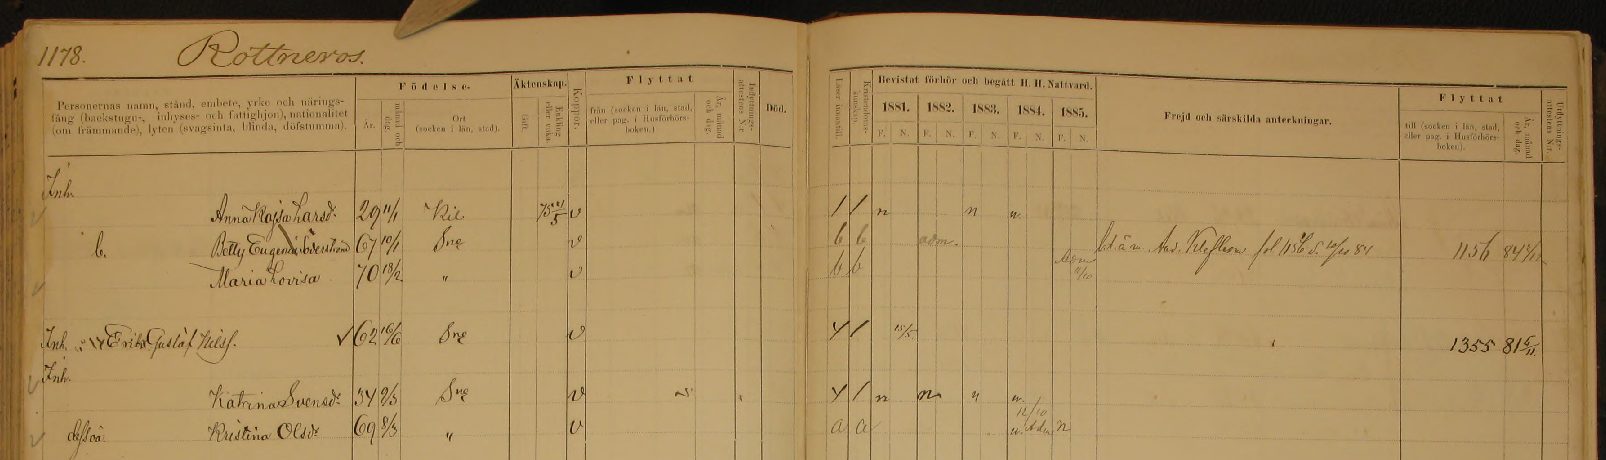 1178. Rottneros.
Personernas namn, stånd, embete, yrke och närings-
fång (backstugu-, inhyses- och fattighjon), nationalitet
(om främmande), lyten (svagsinta, blinda, döfstumma).
Födelse-
År.
månad och dag.
Ort
(socken i län, stad).
Äktenskap.
Gift.
Enkling eller enka.
Koppor.
Flyttat
från (socken i län, stad,
eller pag. i Husförhörs-
boken.)
År, månad och dag.
Inflyttnings-attestens N:r.
Död.
Läser innantill.
Kristendoms-kunskap.
Bevistat förhör och begått H. H. Nattvard.
1881. 1882. 1883. 1884. 1885.
F. N. F. N. F. N. F. N. F. N.
Frejd och särskilda anteckningar.
Flyttat
till (socken i län, stad,
eller pag. i Husförhörs-
boken).
År, månad och dag.
Utflyttnings-attestens N:r.
Inh.
Anna Kajsa Larsdr 29 11/1 Kil 75 5 v 1 1 n n n
b. Betty Eugenia Söderstrand 67 10/1 Sne v b b adm. 1156 84
Maria Lovisa 70 18/2 " v b b
Inh. Erik Gustaf Nilss. 62 16/6 Sne v 4 1 15/5 1355 81 5/11
Inh.
Katrina Svensdr 34 9/3 Sne v 4 1 n n n n
12/10
dess oä. Kristina Olsdr 69 8/3 " v a a n. Adm n